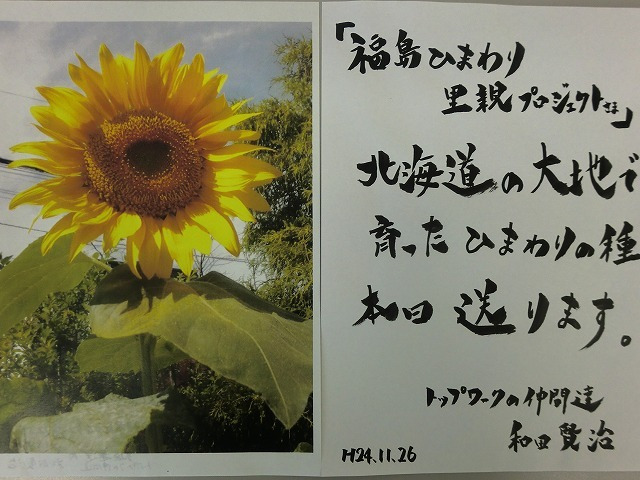 「福島ひまわり
里親プロジェクトさま」
北海道の大地で
育ったひまわりの種
本日送ります。
トップワークの仲間達
和田賢治
H24.11.26